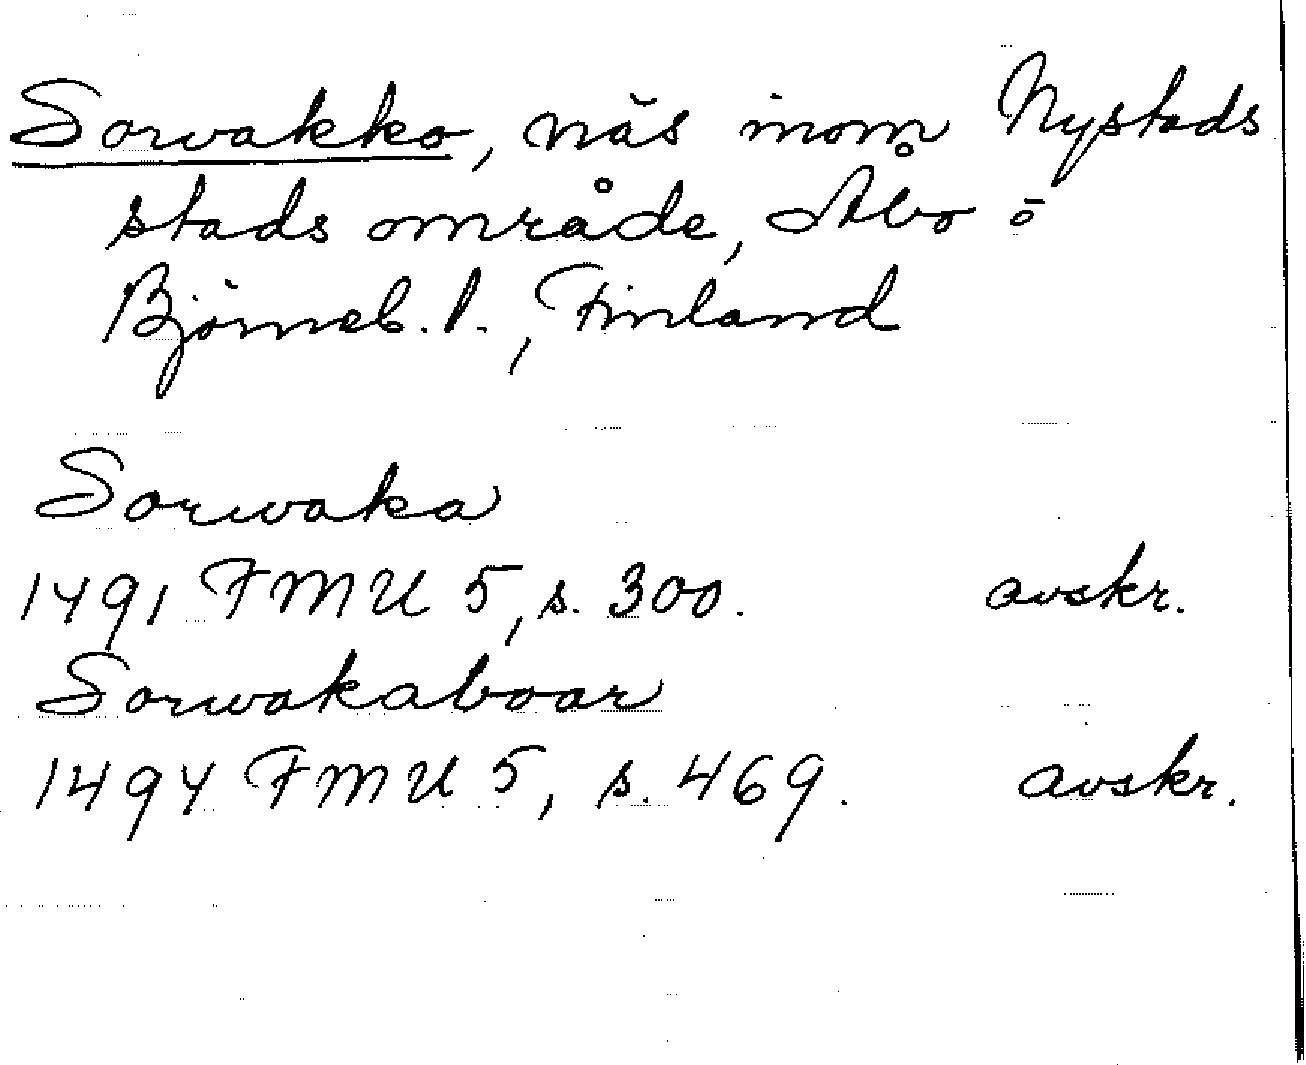 Sorvakko, näs inom Nystads
stads område, Åbo o
Björneb. l., Finland
Sorvaka
1491 FMU 5, s. 300. avskr.
Sorvakaboar
1494 FMU 5, s. 469. avskr.